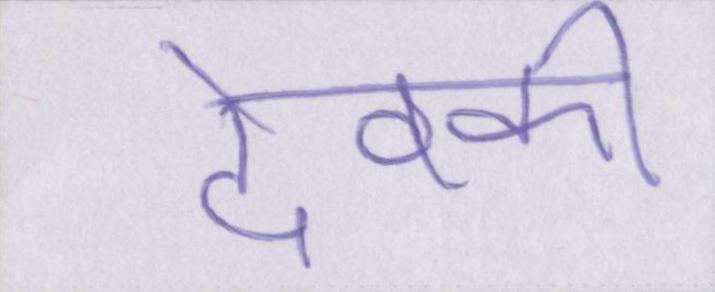 देवकी